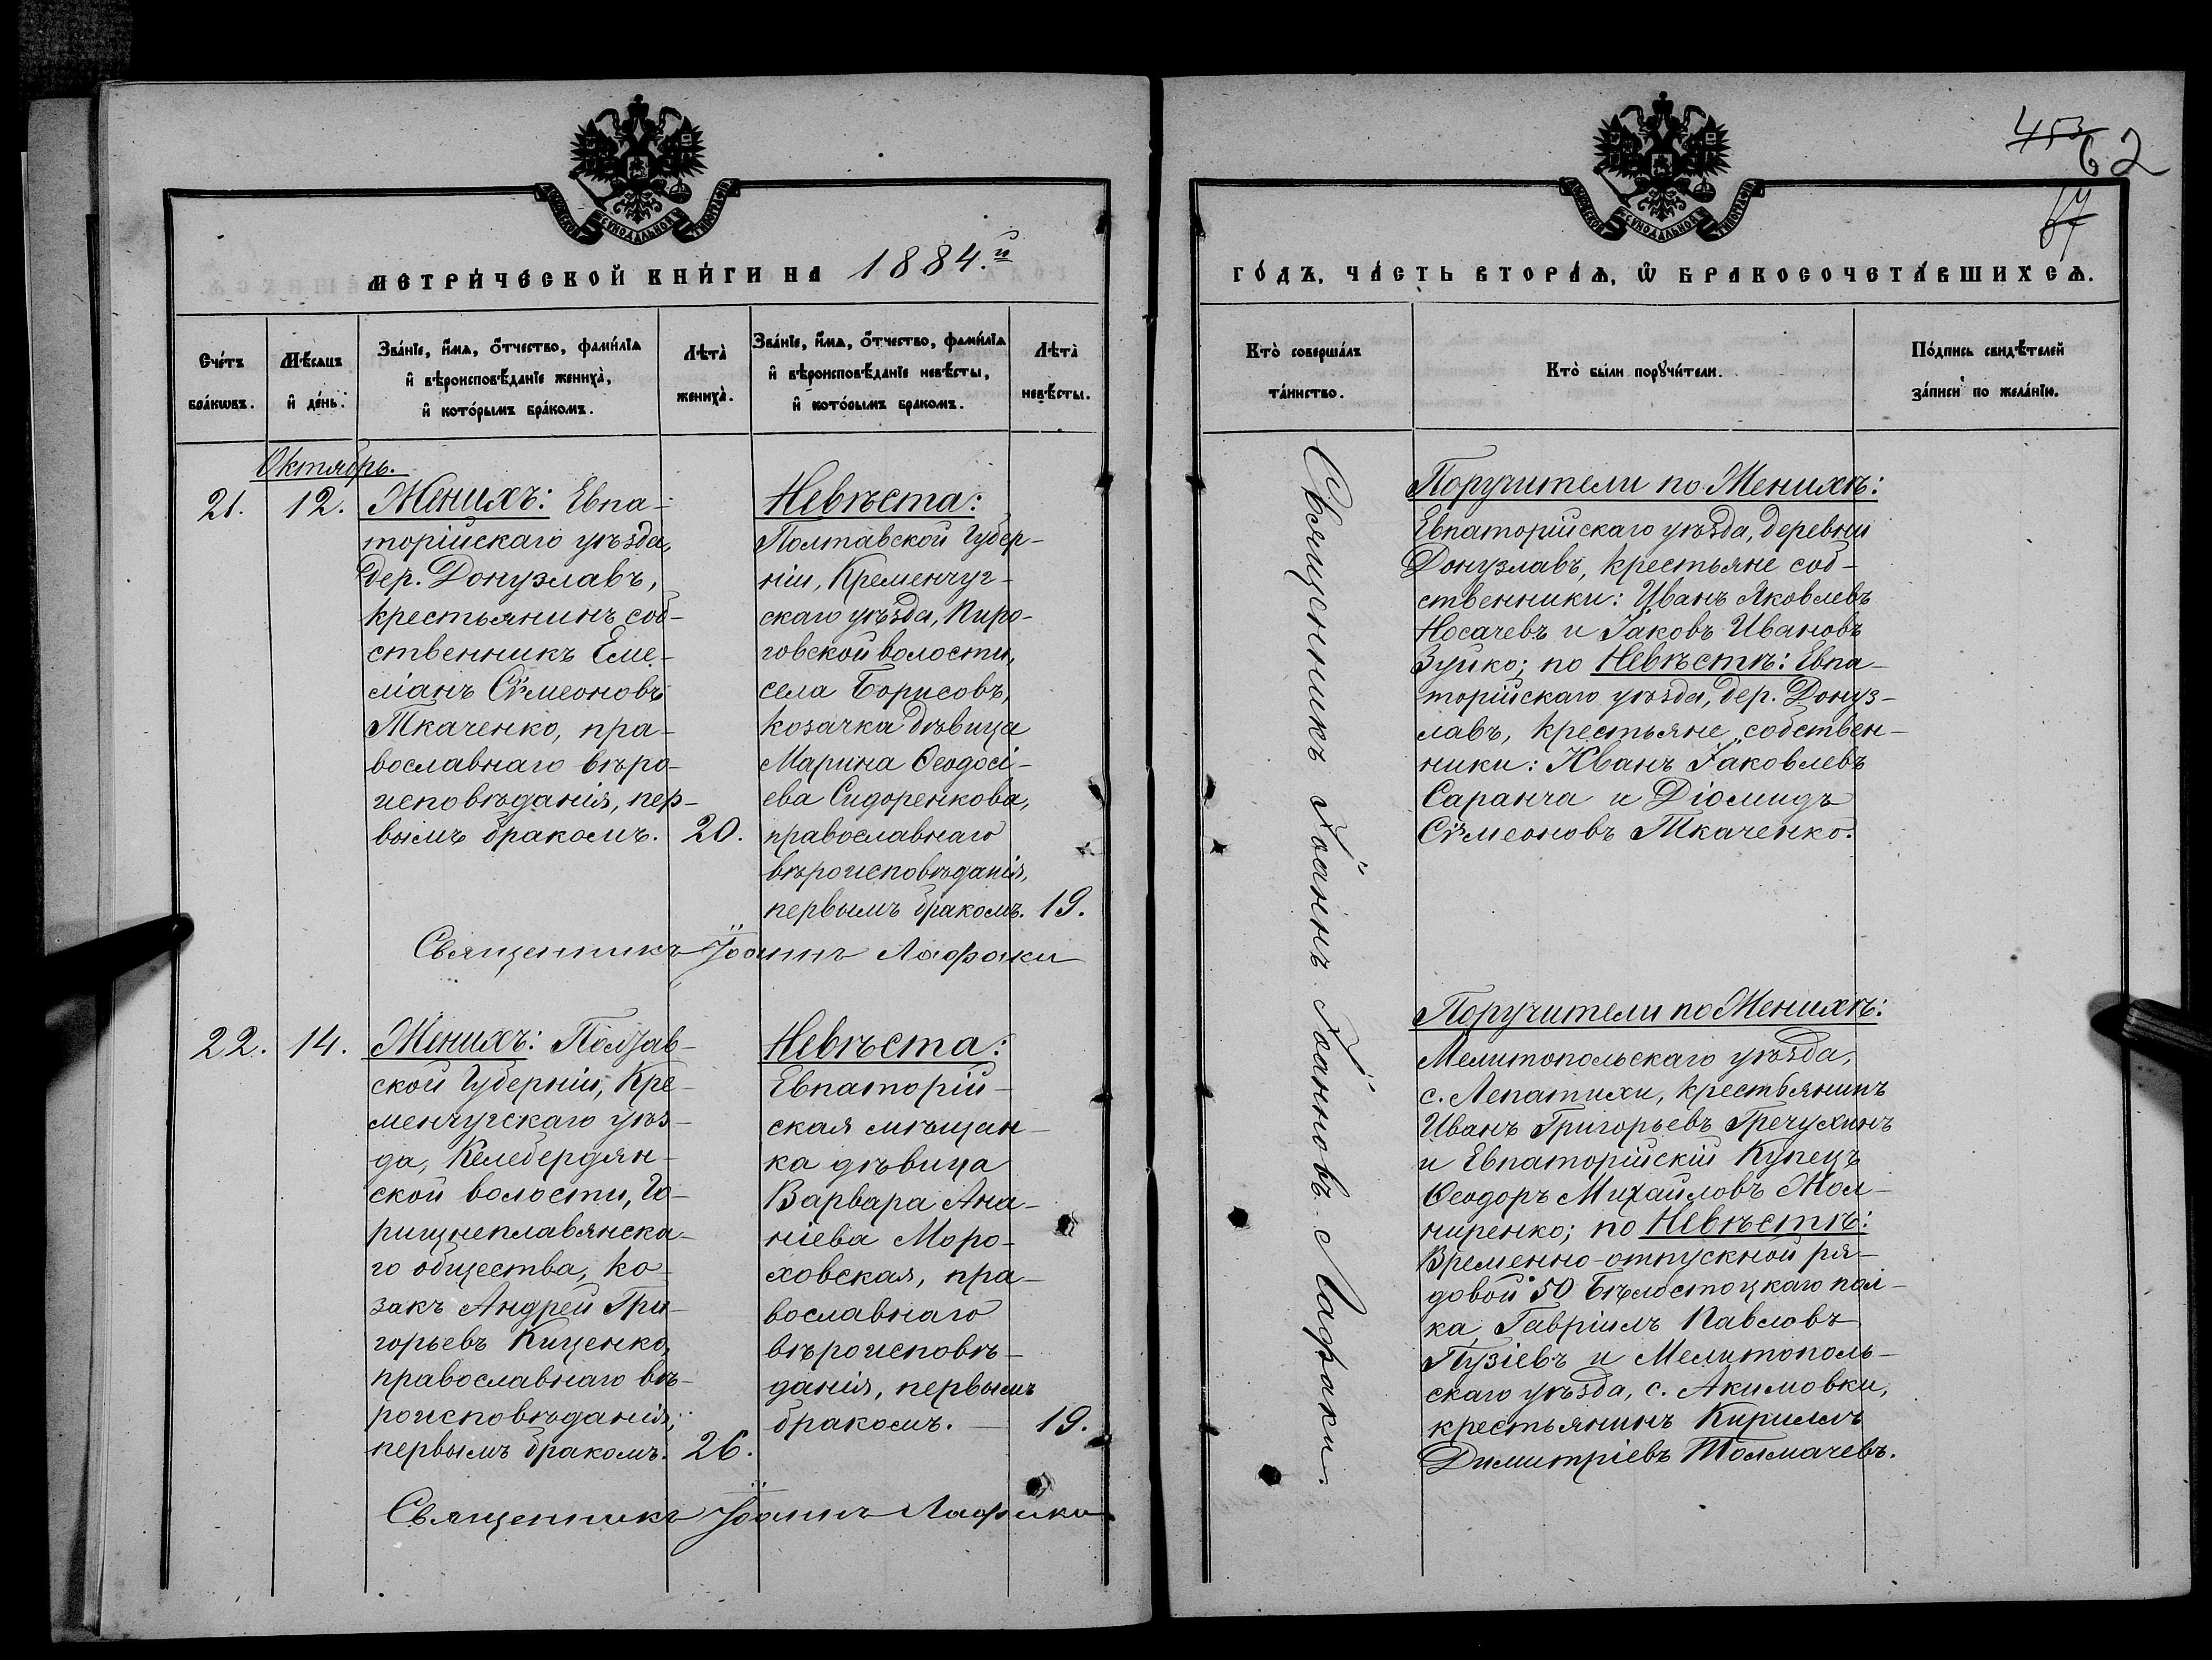 МОСКОВСКОЙ СѴНОДАЛЬНОЙ ТИПОГРАФІИ
МЕТРИ́ЧЕСКОЙ КНИ́ГИ НА 1884.й
Сче́тъ бра́кωвъ.
Мѣ́сяцъ и҆ де́нь.
Зва́нїе, и҆́мѧ, ѻ҆́тчество, фами́лїѧ
и҆ вѣроисповѣ́данїе жениха̀,
и҆ кото́рымъ бра́комъ.
Лѣта̀
жениха̀.
Зва́нїе, и҆́мѧ, ѻ҆́тчество, фами́лїѧ
и҆ вѣроисповѣ́данїе невѣ́сты,
и҆ кото́рымъ бра́комъ.
Лѣта̀
невѣ́сты.
Октябрь.
21.
12.
Женихъ: Евпа-
торійскаго уѣзда,
дер. Донузлавъ,
крестьянинъ соб-
ственникъ Еме-
ліанъ Сѵмеоновъ
Ткаченко, пра-
вославнаго вѣро-
исповѣданія, пер-
вымъ бракомъ.
20.
Невѣста:
Полтавской Губер-
ніи, Кременчуг-
скаго уѣзда, Пиро-
говской волости,
села Борисовъ,
козачка дѣвица
Марина Ѳеодосі-
ева Сидоренкова,
православнаго
вѣроисповѣданія,
первымъ бракомъ.
19.
Священникъ Іоаннъ Лафаки
22.
14.
Женихъ: Полтав-
ской Губерніи, Кре-
менчугскаго уѣз-
да, Келебердян-
ской волости, Го-
ришнеплавянска-
го общества, ко-
закъ Андрей Гри-
горьевъ Киценко,
православнаго вѣ-
роисповѣданія,
первымъ бракомъ.
26.
Невѣста:
Евпаторій-
ская мѣщан-
ка дѣвица
Варвара Ана-
ніева Моро-
ховская, пра-
вославнаго
вѣроисповѣ-
данія, первымъ
бракомъ.
19.
Священникъ Іоаннъ Лафаки
453
62
67
МОСКОВСКОЙ СѴНОДАЛЬНОЙ ТИПОГРАФІИ
ГО́ДЪ, ЧА́СТЬ ВТОРА́Ѧ, Ѡ҆ БРАКОСОЧЕТА́ВШИХСѦ.
Кто̀ соверша́лъ
та́инство.
Кто̀ бы́ли порꙋчи́тели.
По́дпись свидѣ́телей
за́писи по жела́нїю.
Священникъ Іоаннъ Іоанновъ Лафаки.
Поручители по Женихѣ:
Евпаторійскаго уѣзда, деревни
Донузлавъ, крестьяне соб-
ственники: Иванъ Яковлевъ
Носачевъ и Іаковъ Ивановъ
Зуйко; по Невѣстѣ: Евпа-
торійскаго уѣзда, дер. Донуз-
лавъ, крестьяне собствен-
ники: Иванъ Іаковлевъ
Саранча и Діомидъ
Сѵмеоновъ Ткаченко.
Поручители по Женихѣ:
Мелитопольскаго уѣзда,
с. Лепатихи, крестьянинъ
Иванъ Григорьевъ Гречухинъ
и Евпаторійскій Купецъ
Ѳеодоръ Михайловъ Жол-
ниренко; по Невѣстѣ:
Временно-отпускной ря-
довой 50 Бѣлостоцкаго пол-
ка, Гавріилъ Павловъ
Пузіевъ и Мелитополь-
скаго уѣзда, с. Акимовки,
крестьянинъ Кириллъ
Димитріевъ Толмачевъ.